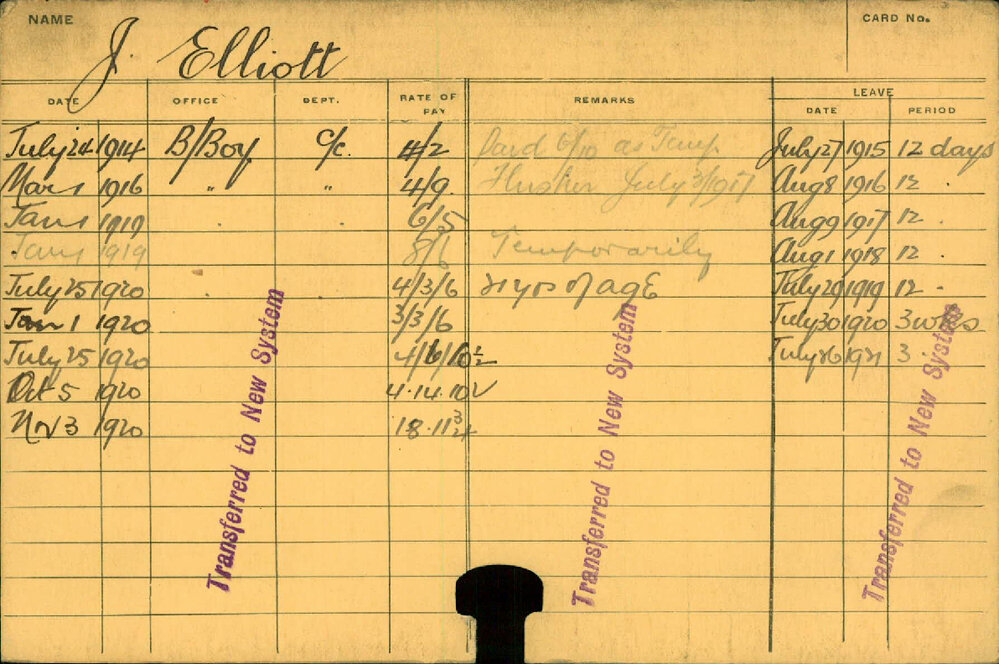 NAME
J. Elliott
CARD No.
DATE OFFICE DEPT. RATE OF PAY REMARKS LEAVE
DATE PERIOD
July 24 1914 B/Boy c/c. 4/2 Paid 6/10 as Temp July 27 1915 12 days
Mar 1 1916 " " 4/9. Flusher July 3/1917 Aug 8 1916 12 "
Jan 1 1919 " " 6/5 Aug 9 1917 12 "
Jany 1919 8/6 Temporarily Aug 1 1918 12 "
July 25 1920 " " 4/3/6 21 yrs of agE July 29 1919 12 "
Jan 1 1920 3/3/6 July 30 1920 3 wks
July 25 1920 4/6/10½ July 26 1921 3 "
Oct 5 1920 4.14.10
Nov 3 1920 18.11¾
Transferred to New System
Transferred to New System
Transferred to New System